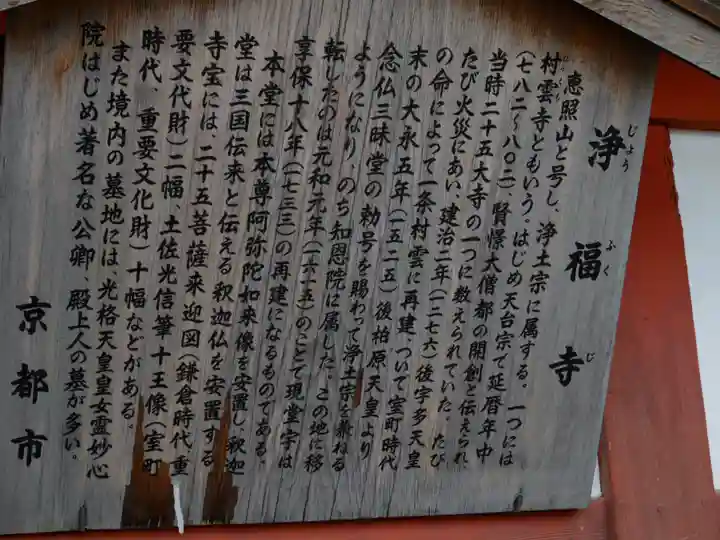 浄福寺
じょう ふく じ
恵照山と号し、浄土宗に属する。一つには
村雲寺ともいう。はじめ天台宗で延暦年中
むらくも
(七八二〜八〇二)、賢憬大僧都の開創と伝えられ、
当時二十五大寺の一つに数えられていた。たび
たび火災にあい、建治二年(一二七六)後宇多天皇
の命によって一条村雲に再建、ついで室町時代
末の大永五年(一五二五)後柏原天皇より
念仏三昧堂の勅号を賜わって浄土宗を兼ねる
ようになり、のち知恩院に属した。この地に移
転したのは元和元年(一六一五)のことで現堂宇は
享保十八年(一七三三)の再建になるものである。
本堂には本尊阿弥陀如来像を安置し、釈迦
堂は三国伝来と伝える釈迦仏を安置する。
寺宝には、二十五菩薩来迎図(鎌倉時代、重
要文代財)二幅、土佐光信筆十王像(室町
時代、重要文化財)十幅などがある。
また境内の墓地には、光格天皇皇女霊妙心
院はじめ著名な公卿、殿上人の墓が多い。
京都市